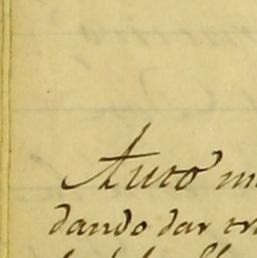 Auto m
dando dar tr